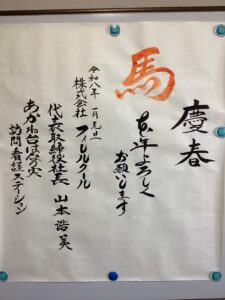 慶春
馬
本年よろしく
お願いします
令和八年 一月元旦
株式会社 フィルクール
代表取締役社長 山本浩美
あかね台はなの実
訪問看護ステーション